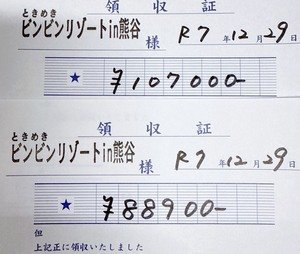 領収証
ときめき
ピンピンリゾートin熊谷 様 R7年12月29日
★ ¥107000-
領収証
ときめき
ピンピンリゾートin熊谷 様 R7年12月29日
★ ¥88900-
但
上記正に領収いたしました